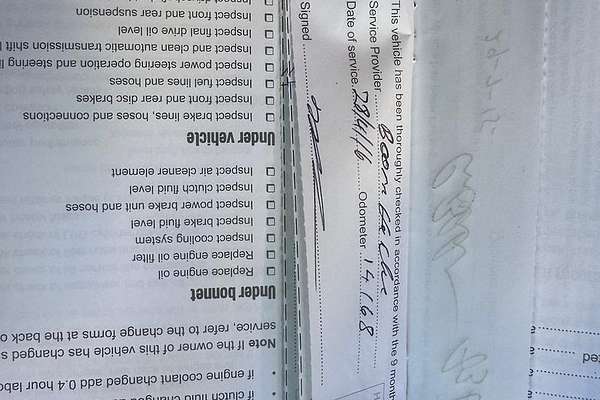 • if clutch fluid changed add
• if engine coolant changed add 0.4 hour labo
Note If the owner of this vehicle has changed s
service, refer to the change forms at the back o
Under bonnet
Replace engine oil
Replace engine oil filter
Inspect cooling system
Inspect brake fluid level
Inspect power brake unit and hoses
Inspect clutch fluid level
Inspect air cleaner element
Under vehicle
Inspect brake lines, hoses and connections
Inspect front and rear disc brakes
Inspect fuel lines and hoses
Inspect power steering operation and steering fl
Inspect and clean automatic transmission shift l
Inspect final drive oil level
Inspect front and rear suspension
This vehicle has been thoroughly checked in accordance with the 9 month
Service Provider
Date of service 28/4/16 Odometer 14168
Signed